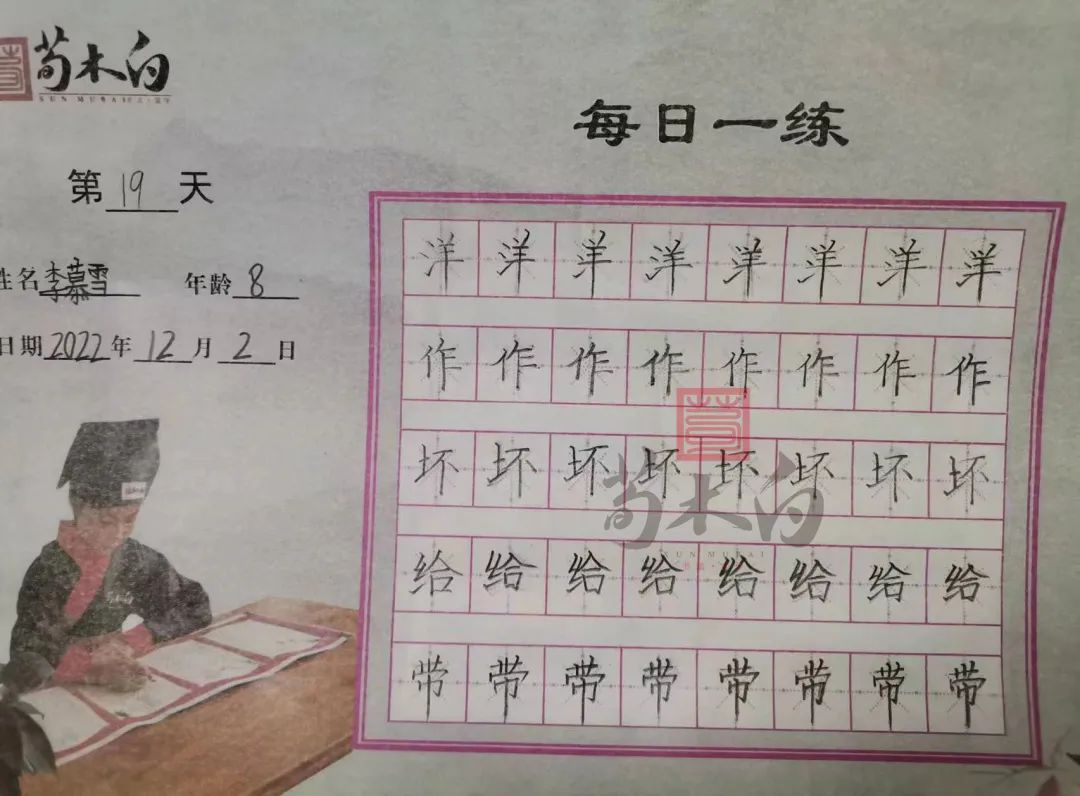 荀木白
SUN MUBAI
每日一练
第19天
姓名李慕雪 年龄8
日期2022年12月2日
洋洋洋洋洋洋洋洋
作作作作作作作作
坏坏坏坏坏坏坏坏
给给给给给给给给
带带带带带带带带
荀木白
SUN MUBAI